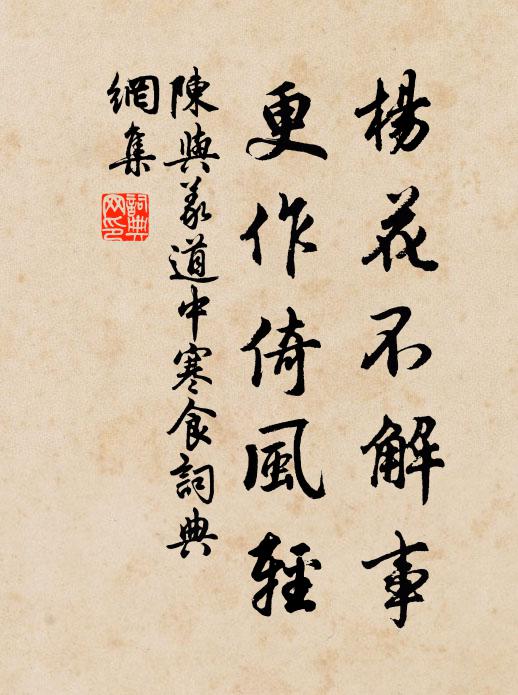 楊花不解事
更作倚風輕
陳與義道中寒食詞典
網集
詞典
网印